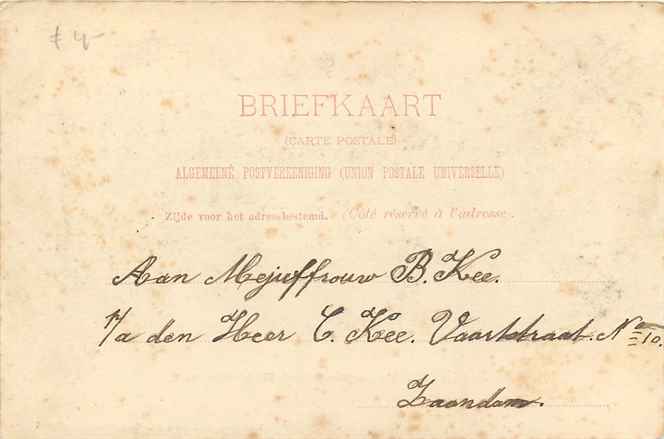 £ 4-
BRIEFKAART
(CARTE POSTALE)
ALGEMEENE POSTVEREENIGING (UNION POSTALE UNIVERSELLE)
Zijde voor het adres bestemd. (Côté réservé à l'adresse.
Aan Mejuffrouw B. Kee.
p/a den Heer C. Kee. Vaartstraat. No 10.
Zaandam.